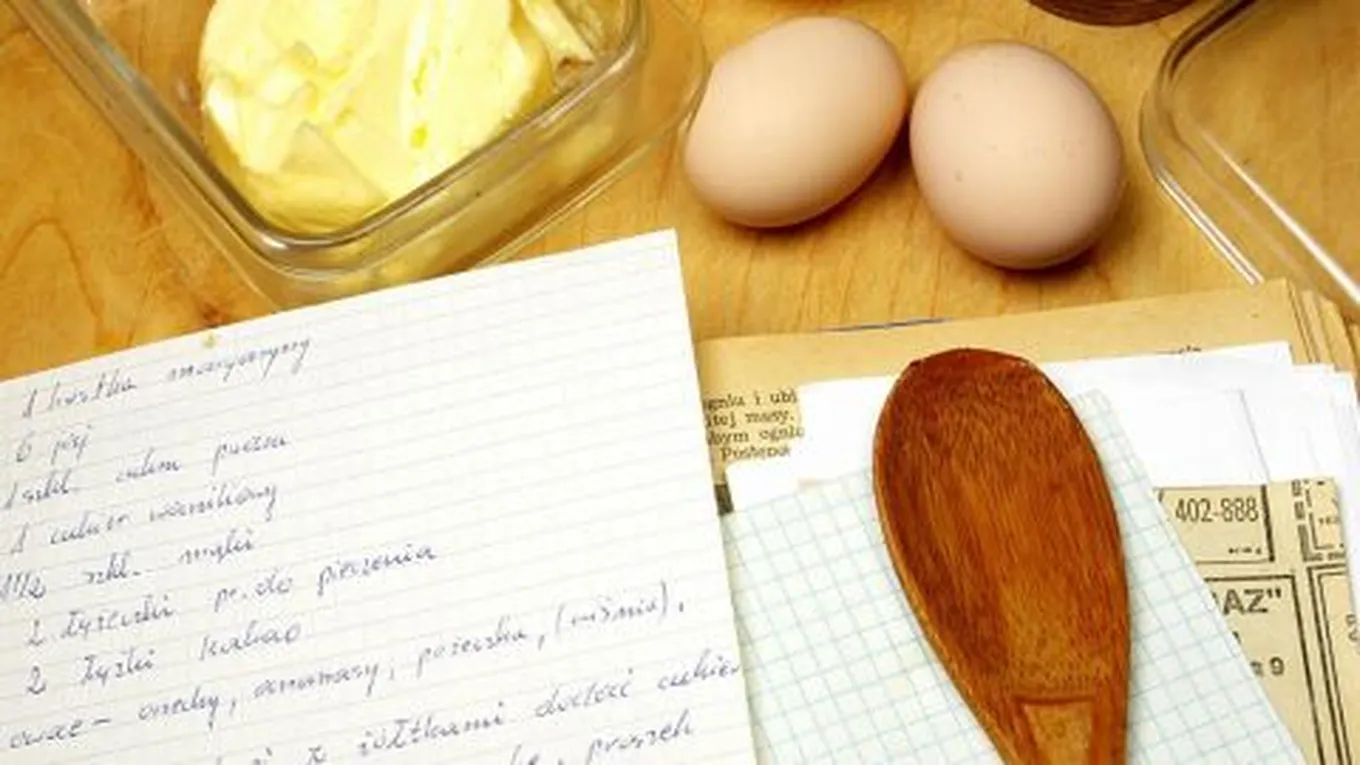 1 kostka margaryny
6 jaj
1 szkl. cukru pudru
1 cukier waniliowy
1 1/2 szkl. mąki
2 łyżeczki pr. do pieczenia
2 łyżki kakao
owoce - orzechy, ananasy, porzeczka, (wiśnie),
z żółtkami dodać cukier
proszek
ogniu i ubi
itej masy.
bym ogniu
402-888
AZ"
9